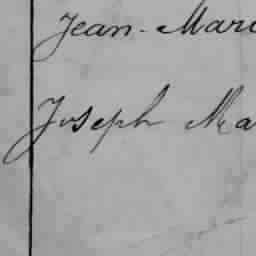 Jean-Mari
Joseph Ma